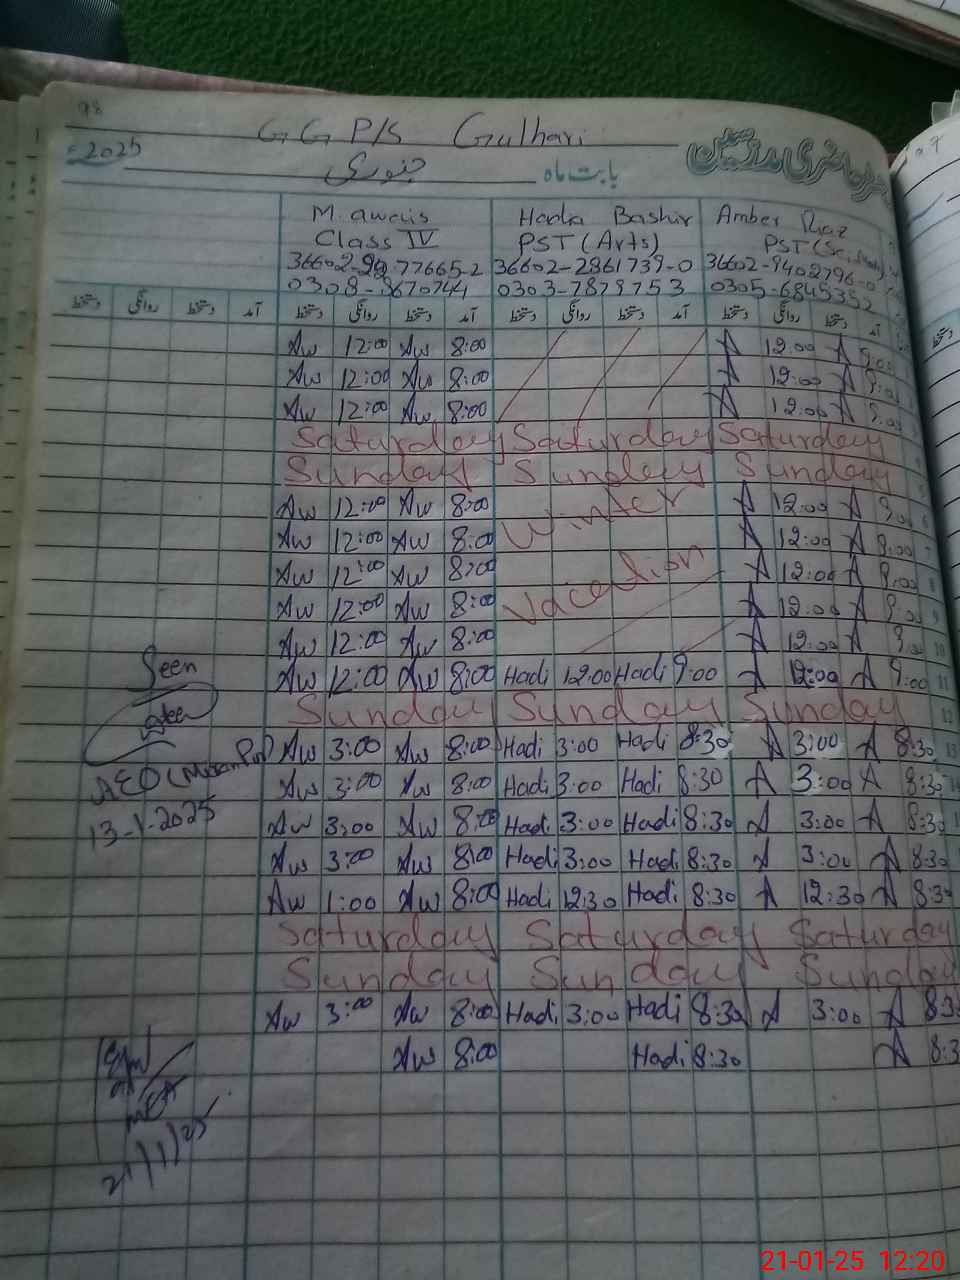 98
G G P/S Gulhari
2025 جنوری بابت ماہ
M. awais Hadia Bashir Amber Riaz
Class IV PST (Arts) PST (Sc,
36602-77665-2 36602-2861739-0 36602-9402796-0
0308-8670744 0303-7879753 0305-6845352
دستخط روانگی دستخط آمد دستخط روانگی دستخط آمد دستخط روانگی دستخط آمد دستخط روانگی دستخط آمد
Aw 12:00 Aw 8:00 A 12:00 A 9:00
Aw 12:00 Aw 8:00 A 12:00 A 9:00
Aw 12:00 Aw 8:00 A 12:00 A 9:00
Saturday Saturday Saturday
Sunday Sunday Sunday
Aw 12:00 Aw 8:00 Winter A 12:00 A 9:00 6
Aw 12:00 Aw 8:00 A 12:00 A 9:00 7
Aw 12:00 Aw 8:00 Vacation A 12:00 A 9:00 8
Aw 12:00 Aw 8:00 A 12:00 A 9:00 9
Aw 12:00 Aw 8:00 A 12:00 A 9:00 10
Seen Aw 12:00 Aw 8:00 Hadi 12:00 Hadi 9:00 A 12:00 A 9:00 11
Sunday Sunday Sunday 12
Aw 3:00 Aw 8:00 Hadi 3:00 Hadi 8:30 A 3:00 A 8:30 13
AEO ( Aw 3:00 Aw 8:00 Hadi 3:00 Hadi 8:30 A 3:00 A 8:30
13-1-2025 Aw 3:00 Aw 8:00 Hadi 3:00 Hadi 8:30 A 3:00 A 8:30
Aw 3:00 Aw 8:00 Hadi 3:00 Hadi 8:30 A 3:00 A 8:30
Aw 1:00 Aw 8:00 Hadi 12:30 Hadi 8:30 A 12:30 A 8:3
Saturday Saturday Saturday
Sunday Sunday Sunday
Aw 3:00 Aw 8:00 Hadi 3:00 Hadi 8:30 A 3:00 A 8:3
Aw 8:00 Hadi 8:30 A 8:3
MEA
21/1/25
21-01-25 12:20